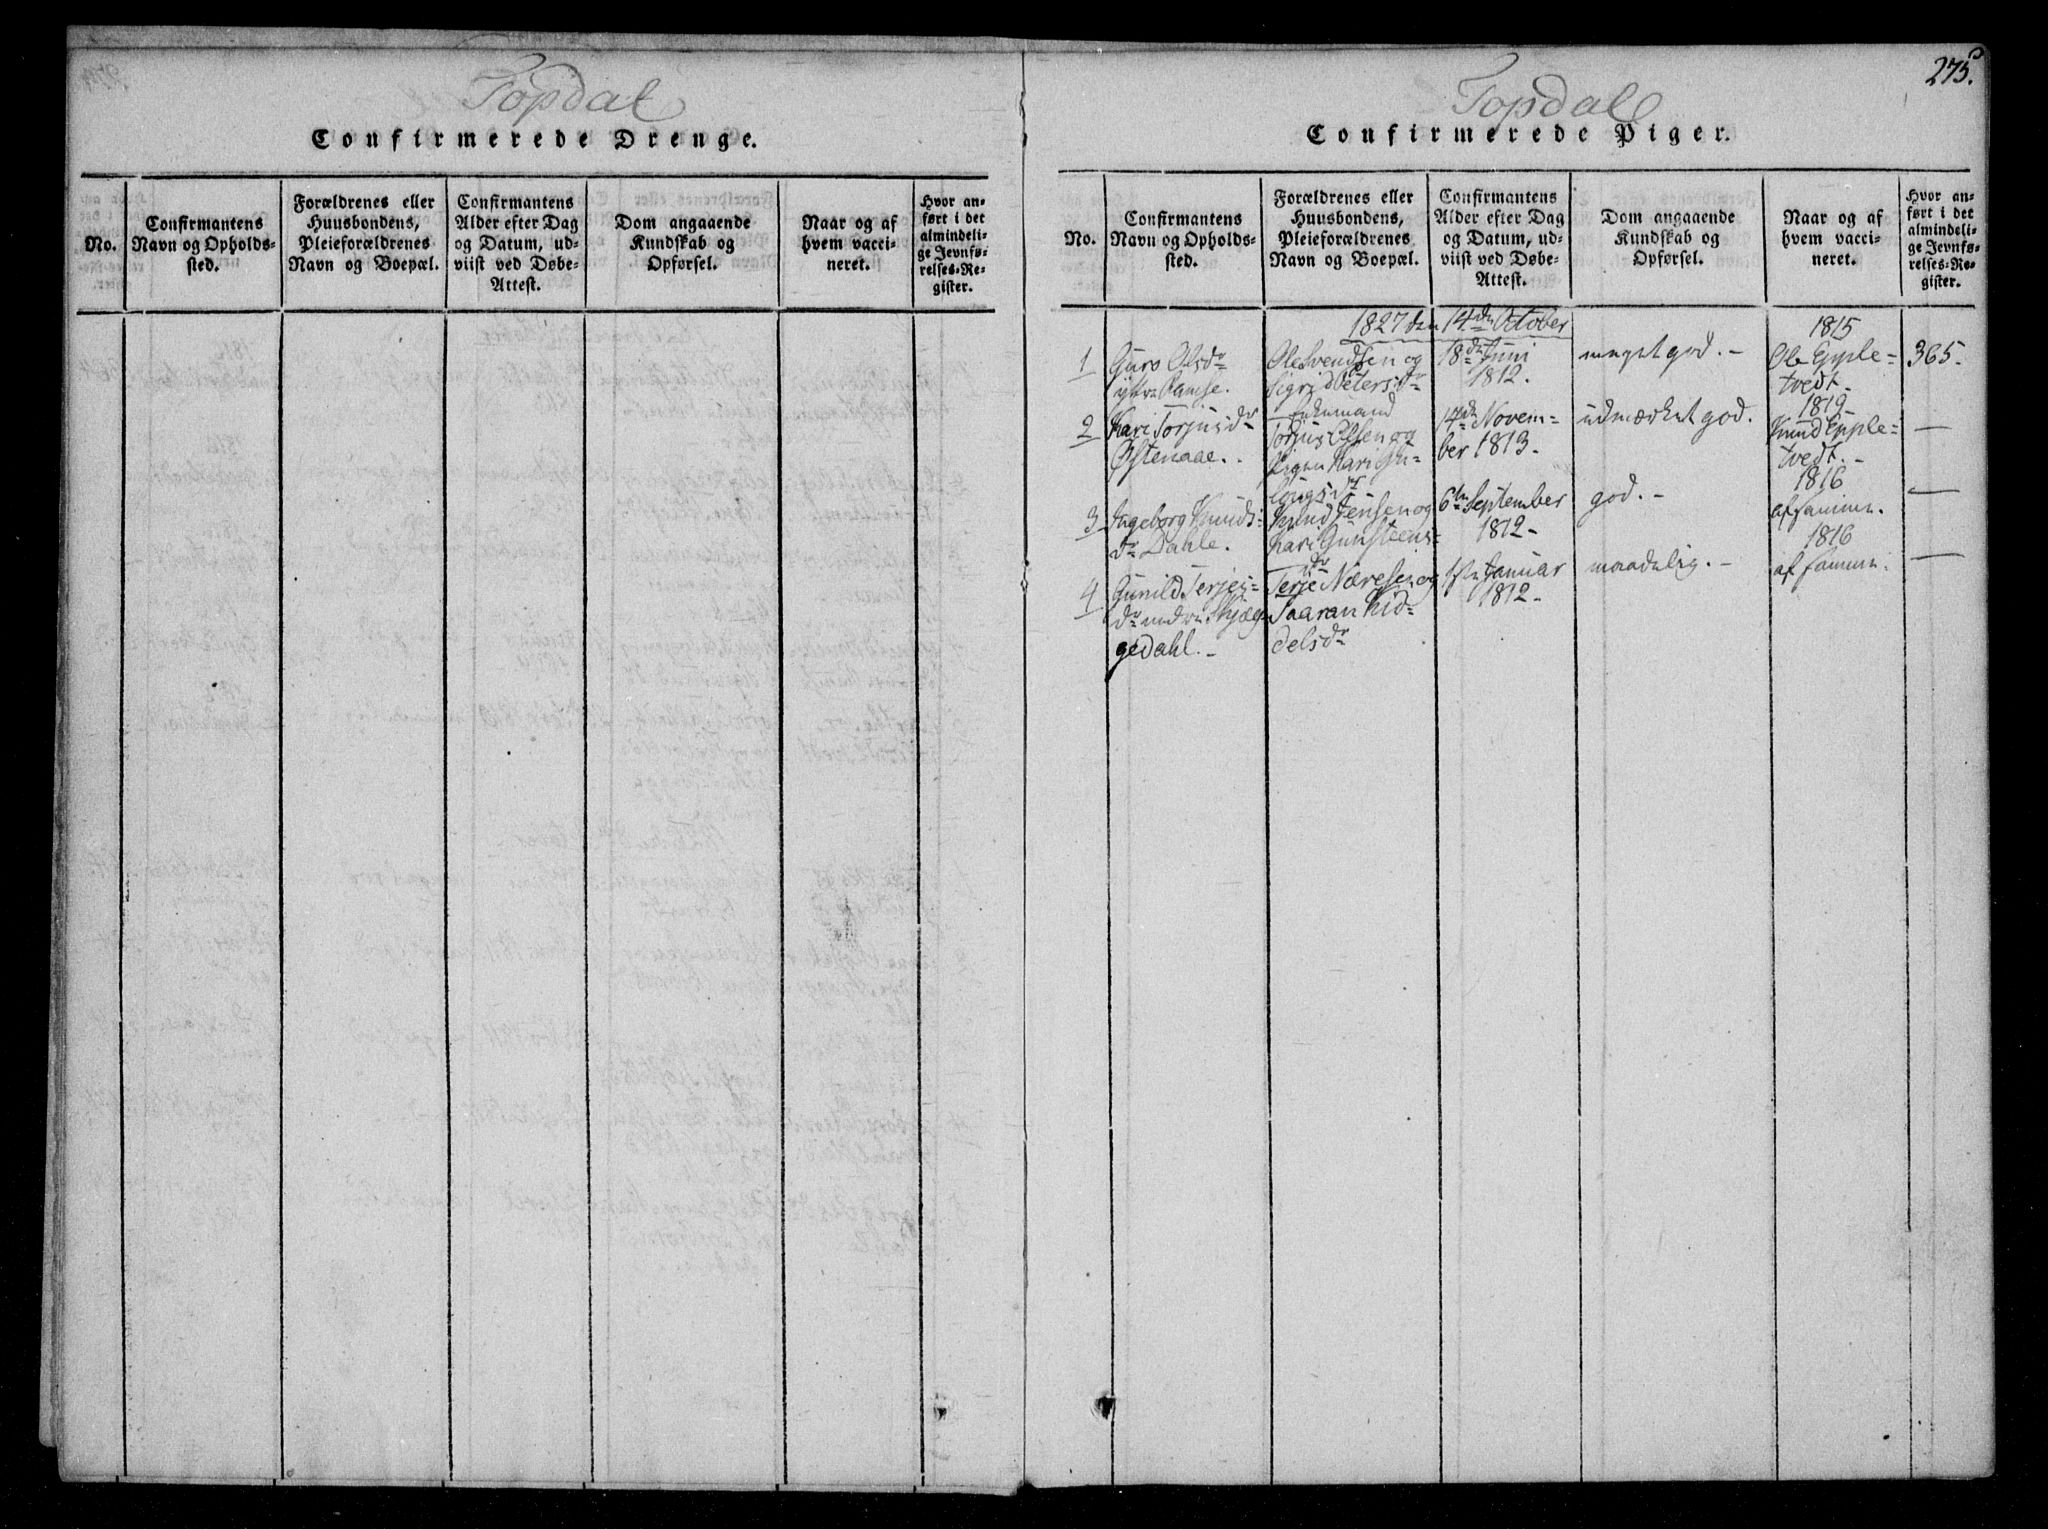 Topdal
Confirmerede Drenge.
No.
Confirmantens
Navn og Opholds-
sted.
Forældrenes eller
Huusbondens,
Pleieforældrenes
Navn og Boepæl.
Confirmantens
Alder efter Dag
og Datum, ud-
viist ved Døbe-
Attest.
Dom angaaende
Kundskab og
Opførsel.
Naar og af
hvem vacci-
neret.
Hvor an-
ført i det
almindeli-
ge Jevnfø-
relses-Re-
gister.
275.
Topdal
Confirmerede Piger.
No.
Confirmantens
Navn og Opholds-
sted.
Forældrenes eller
Huusbondens,
Pleieforældrenes
Navn og Boepæl.
Confirmantens
Alder efter Dag
og Datum, ud-
viist ved Døbe-
Attest.
Dom angaaende
Kundskab og
Opførsel.
Naar og af
hvem vacci-
neret.
Hvor an-
ført i det
almindeli-
ge Jevnfø-
relses-Re-
gister.
1827 den 14de October
1
Guro Olsdr
ytre Ramse.
Ole Svendsen og
Sigrid Petersdr
18de Juni
1812.
meget god. -
1815
Ole Epple-
tvedt.
365.
2
Kari Torjusdr
Østenaae.
Torjus Olsen og
Pigen Kari Gu-
14de Novem-
ber 1813.
udmærket god.
1819
Knud Epple-
tvedt. -
—
3
Ingeborg Knuds-
dr Dahle.
Knud Jensen og
Kari Gunsteens-
dr
6te September
1812 -
god. -
1816
af samme.
—
4
Gunild Terjes-
dr nedre Skjæg-
gedahl. -
Terje Næresen og
Taaran Kid-
delsdr
1ste Januar
1812 -
maadelig. -
1816
af samme.
—